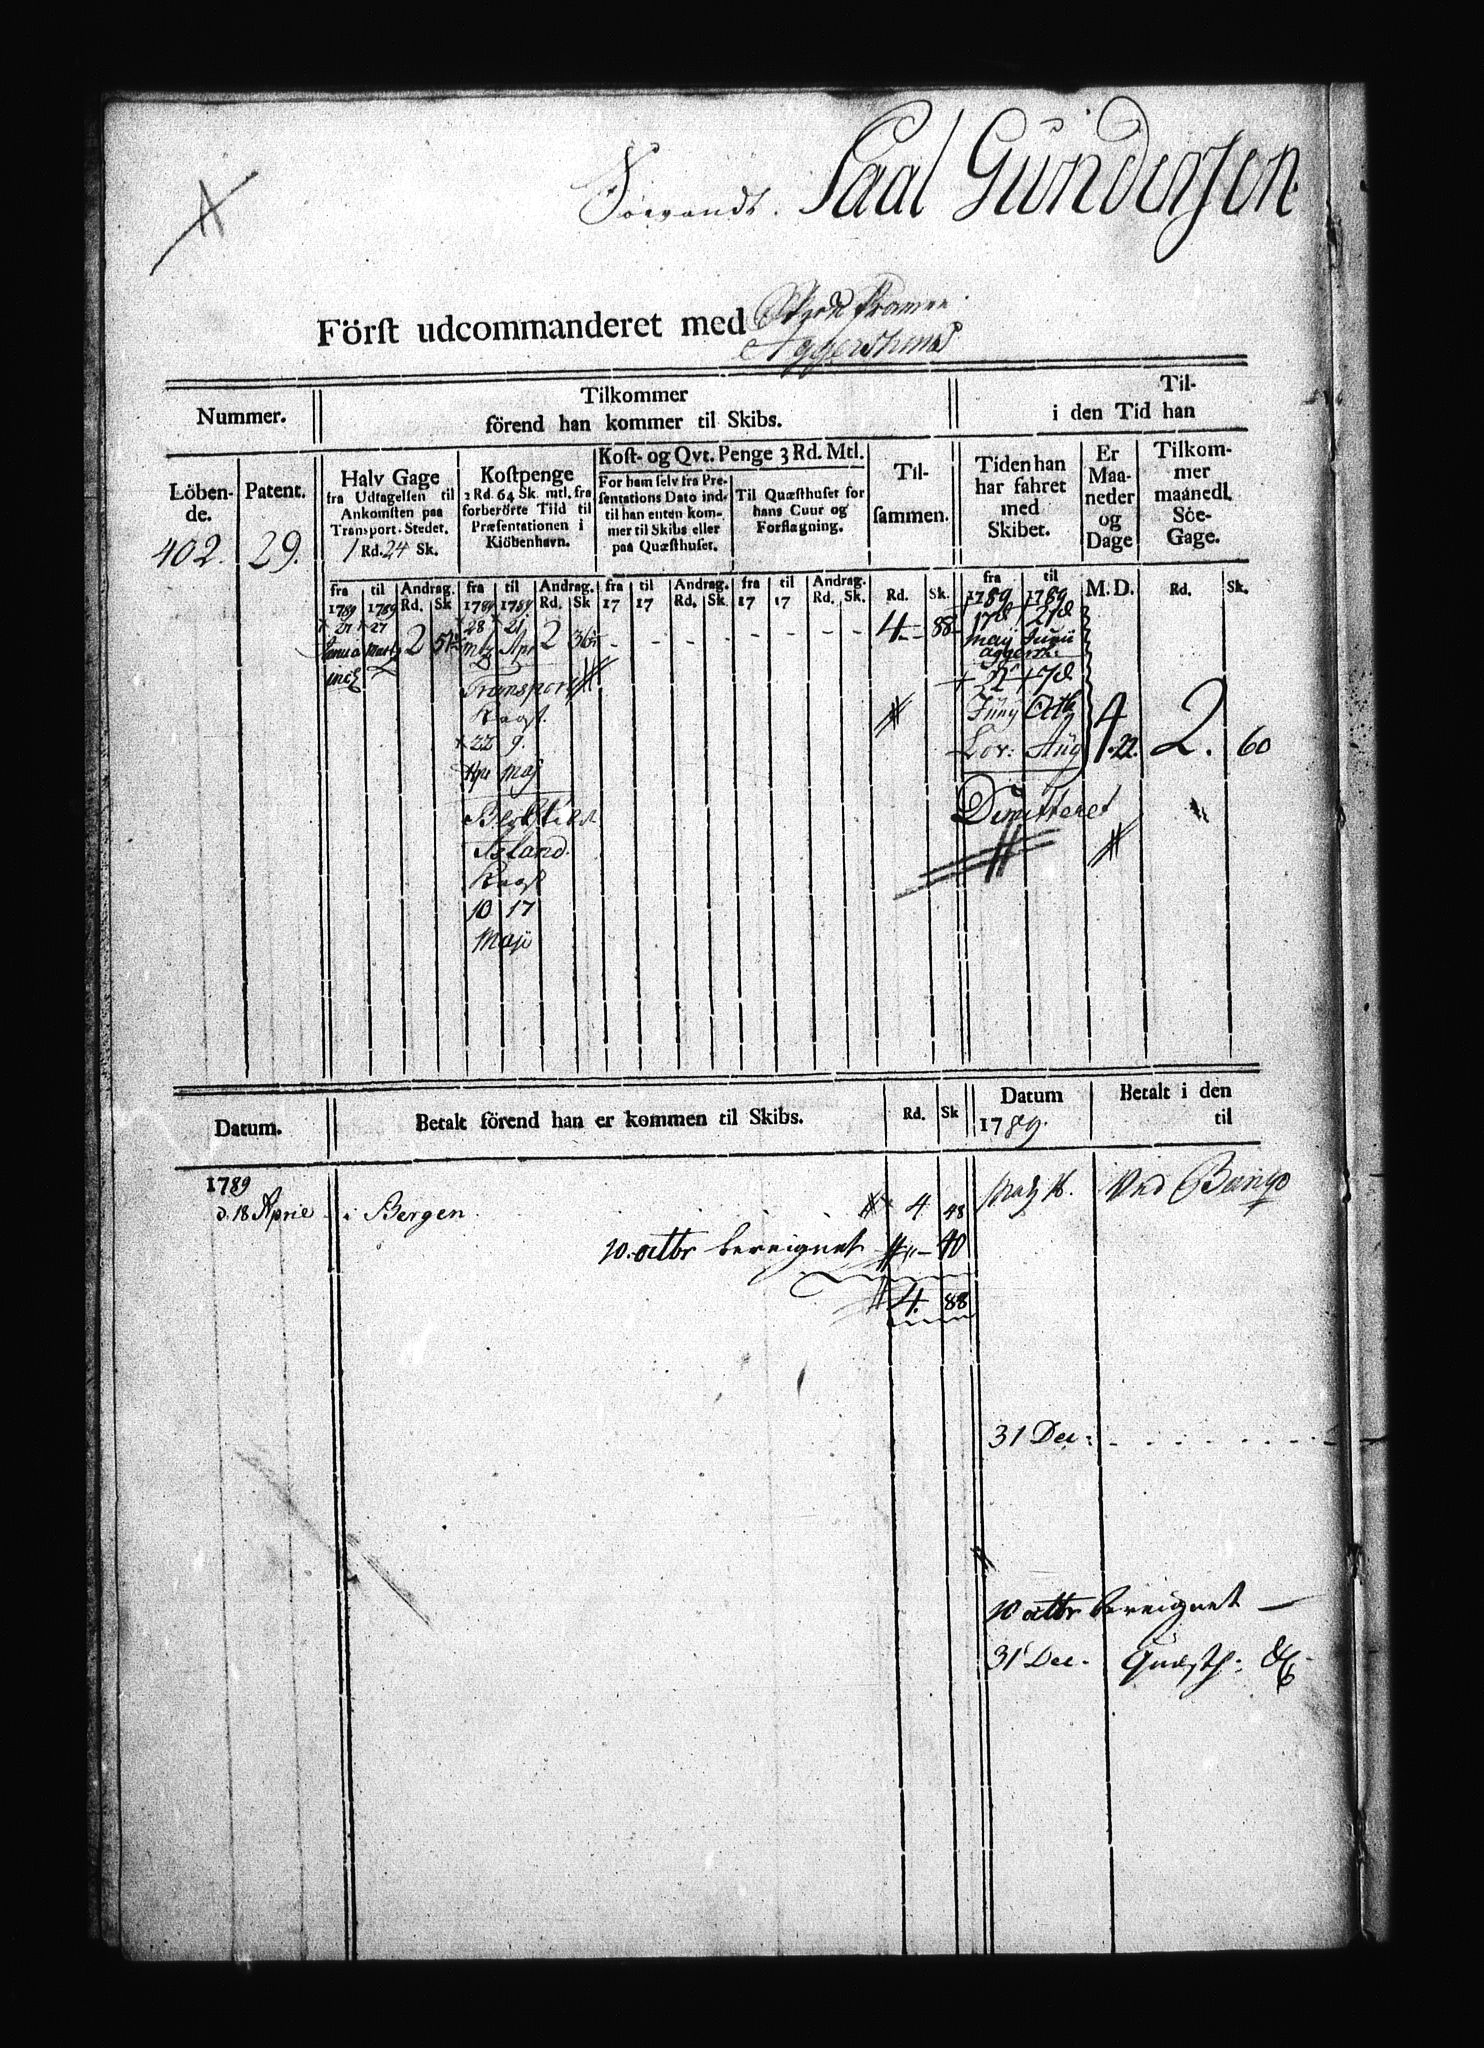 Paal Gundersen
Först udcommanderet med
Aggershuus
Nummer.
Tilkommer
förend han kommer til Skibs.
Til-
i den Tid han
Löben-
de.
Patent.
Halv Gage
fra Udtagelsen til
Ankomsten paa
Transport-Stedet.
1 Rd. 24 Sk.
Kostpenge
2 Rd. 64 Sk. mtl. fra
forberörte Tiid til
Præsentationen i
Kiöbenhavn.
Kost- og Qvt. Penge 3 Rd. Mtl.
For ham selv fra Præ-
sentations Dato ind-
til han enten kom-
mer til Skibs eller
paa Quæsthuset.
Til Quæsthuset for
hans Cuur og
Forflagning.
Til-
sammen.
Tiden han
har fahret
med
Skibet.
Er
Maa-
neder
og
Dage
Tilkom-
mer
maanedl.
Söe-
Gage.
402. 29.
fra til Andrag. fra til Andrag. fra til Andrag. fra til Andrag. fra til
1789 1789 Rd. Sk 1789 1789 Rd. Sk 17 17 Rd. Sk. 17 17 Rd. Sk. Rd. Sk. 1789 1789 M. D. Rd. Sk.
27 27 28 21 17d 21d
Martz 2 Apr 2 4 88
Maij Junii
Transport
22 9.
Maij
Island
Kaast
10 17
Maji
7d
Junij Octb
Aug 4.22. 2. 60
Dimitteret
Datum.
Betalt förend han er kommen til Skibs.
Rd. Sk
Datum
1789.
Betalt i den
til
1789
d. 18 Aprie i Bergen 4 48
10. octbr bereignet 40
4. 88
16. Ved
31 Dec:
10 octbr bereignet
31 Dec. Quæsth: